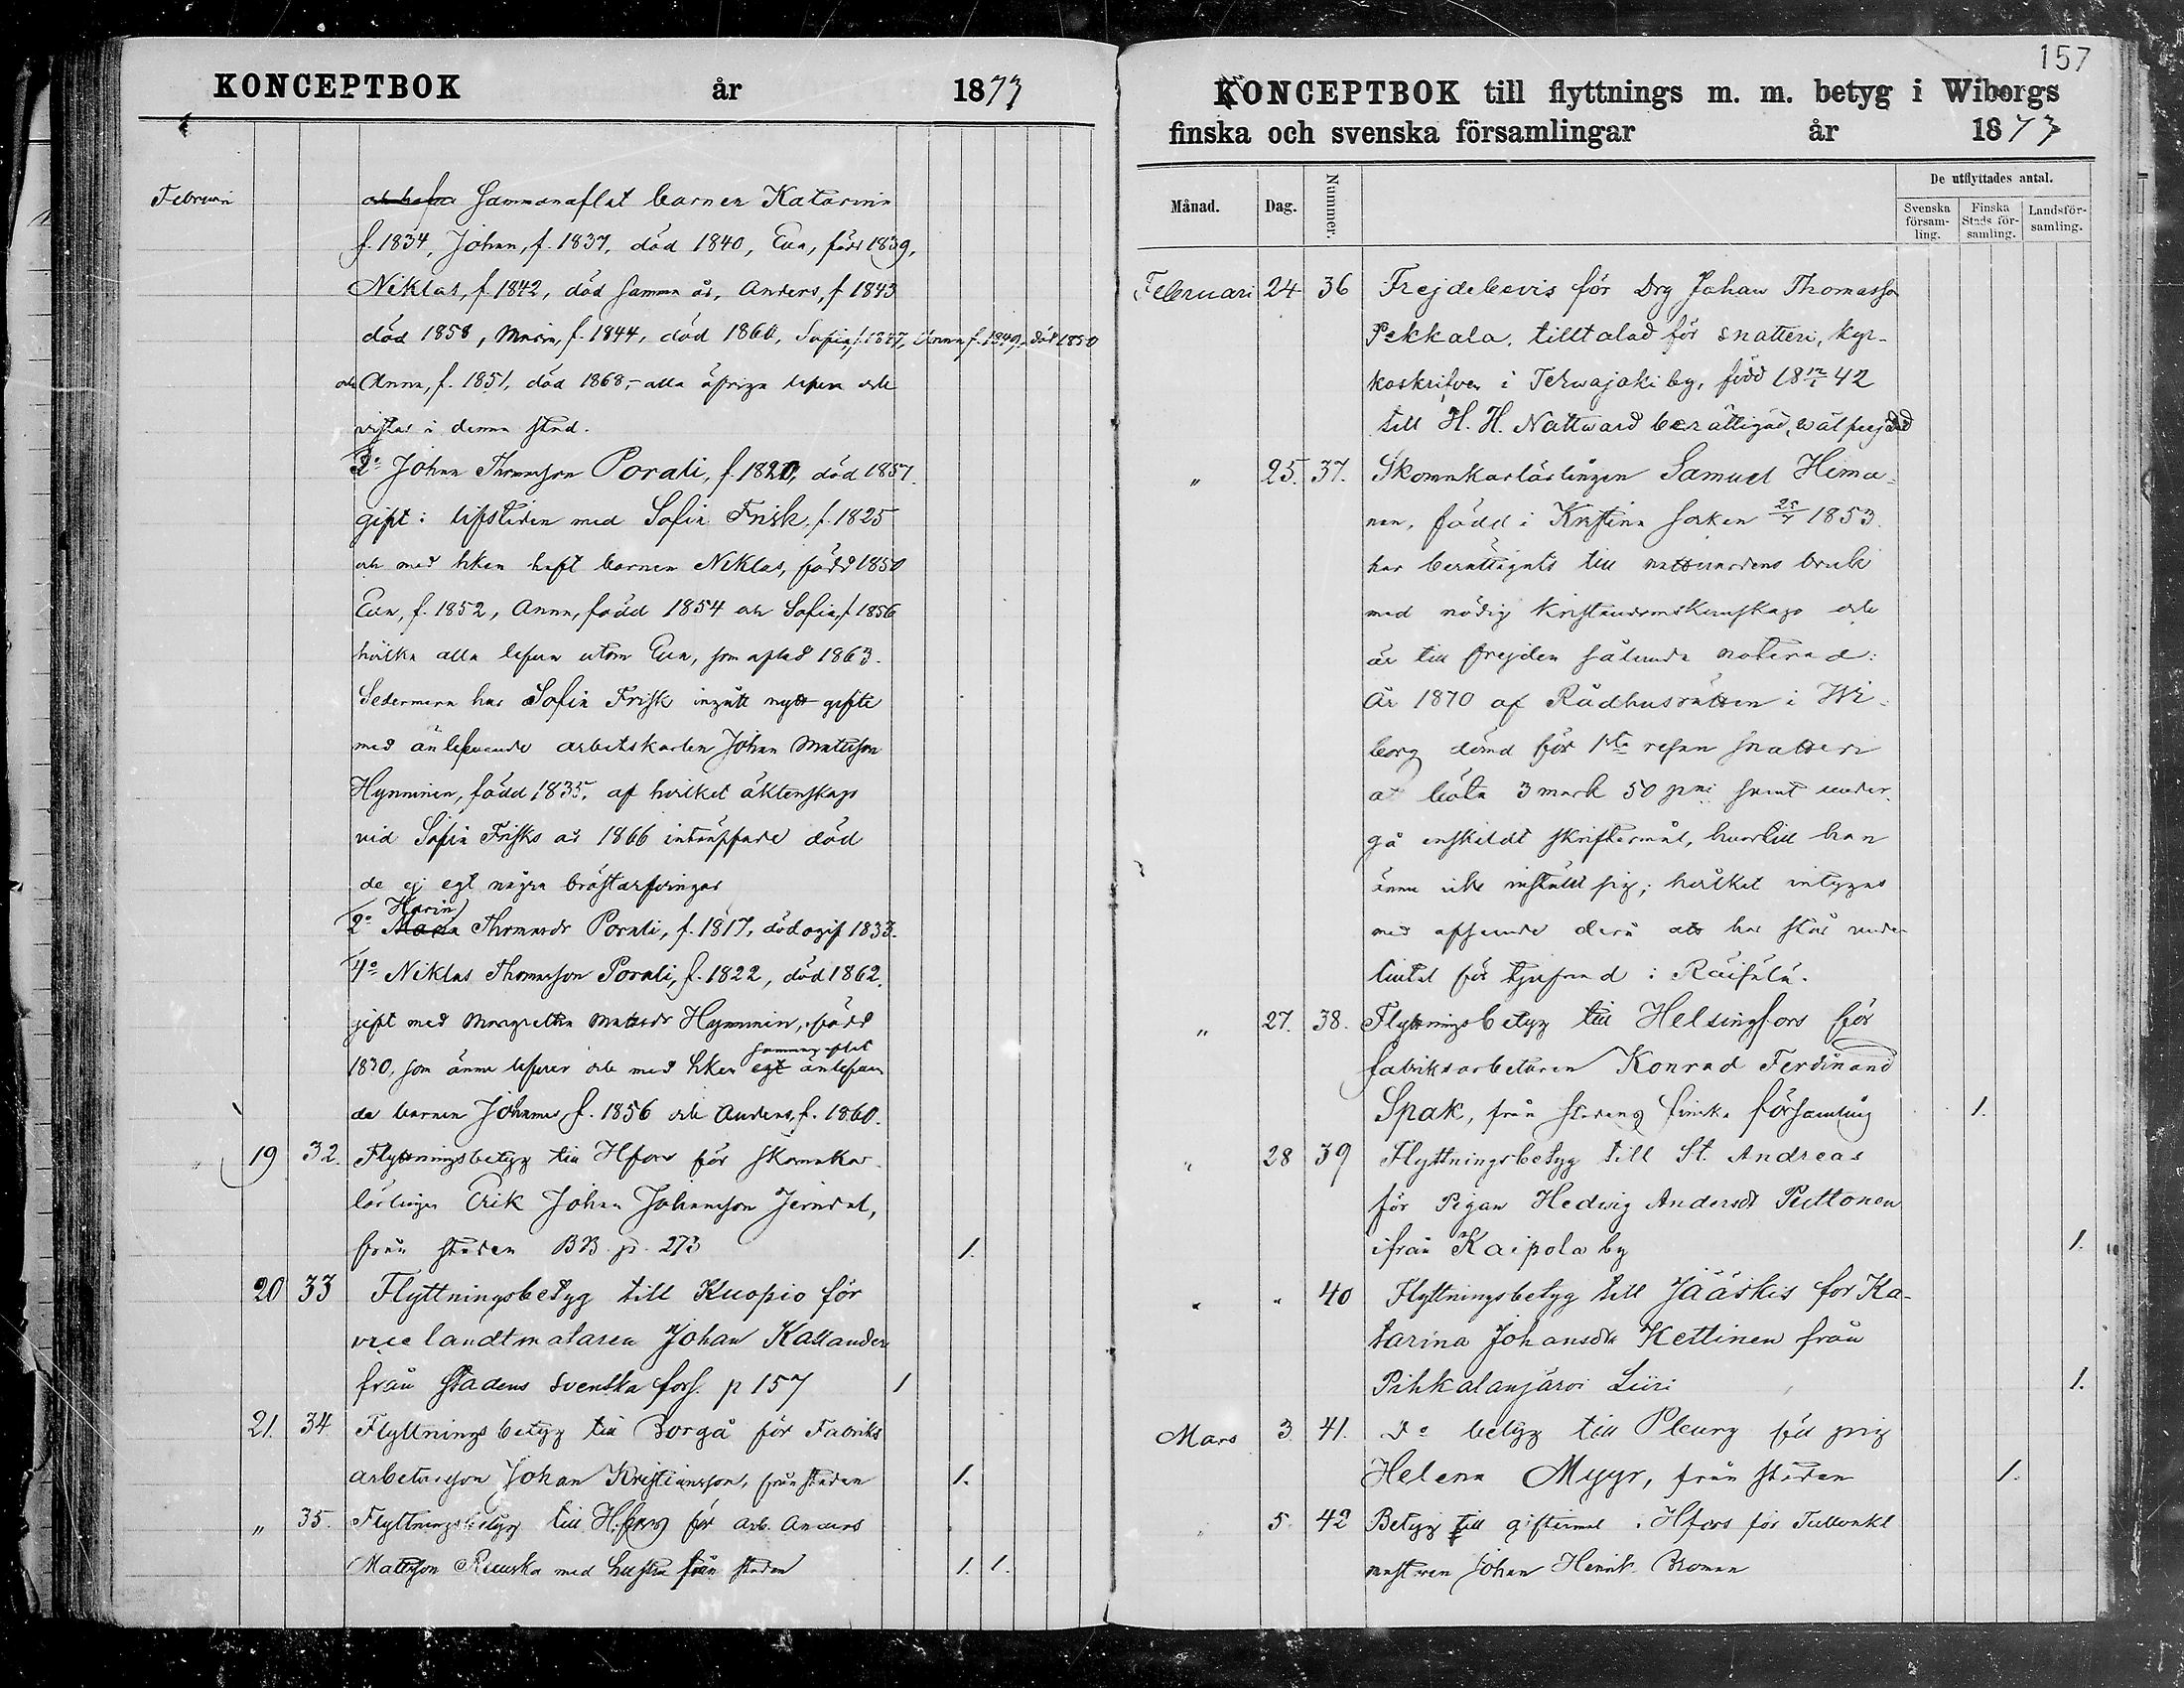 KONCEPTBOK år 1873
Februari
och hafva sammanaflat barnen Katarina
f. 1834, Johan, f. 1837, död 1840, Eva, född 1839,
Niklas, f. 1842, död samma år, Anders, f 1843
död 1858, Maria, f. 1844, död 1860, Sofia, f. 1847, Anna f. 1849, död 1850
och Anna, f. 1851, död 1868, - alla öfriga lefva och
vistas i denna stad.
2o Johan Thomasson Porali, f. 1820, död 1857.
gift i lifstiden med Sofia Frisk, f. 1825
och med hken haft barnen Niklas, född 1850
Eva, f. 1852, Anna, född 1854 och Sofia, f 1856
hvilka alla lefva utom Eva, som afled 1863.
Sedermera har Sofia Frisk ingått nytt gifte
med änlefvande arbetskarlen Johan Matsson
Hynninen, född 1835, af hvilket äktenskap
vid Sofia Frisks år 1866 inträffade död
de ej egt några bröstarfvingar
Karin
2o Maria Thomasdr Porali, f. 1817, död ogift 1833.
4o Niklas Thomasson Porali, f. 1822, död 1862.
gift med Margretha Matsdr Hynninen, född
sammanaflat
1830, som ännu lefver och med hken egt änlefvan
de barnen Johannes, f. 1856 och Anders, f. 1860.
19 32. Flyttningsbetyg till Hfors för skomakar
lärlingen Erik Johan Johansson Jerndal,
från staden BB. p. 273 1.
20 33 Flyttningsbetyg till Kuopio för
vice landtmätaren Johan Kallander
från stadens svenska förs. p 157 1
21. 34 Flyttningsbetyg till Borgå för Fabriks
arbetaresson Johan Kristiansson, från staden 1.
" 35. Flyttningsbetyg till H.fors för arb. Anders
Mattsson Ruuska med hustru från staden 1. 1.
157
KONCEPTBOK till flyttnings m. m. betyg i Wiborgs
finska och svenska församlingar år 1873
Månad. Dag. Nummer. De utflyttades antal.
Svenska försam-ling. Finska Stads för-samling. Landsför-samling.
Februari 24 36 Frejdebevis för Drg Johan Thomasson
Pekkala, tilltalad för snatteri, kyr-
koskrifven i Terwajoki by, född 18 12/1 42
till H. H. Nattward berättigad, wälfrejdad
" 25. 37. Skomakarlärlingen Samuel Hima-
nen, född i Kristina socken 25/7 1853.
har berättigats till nattvardens bruk
med nödig kristendomskunskap och
är till frejden sålunda noterad:
År 1870 af Rådhusrätten i Wi-
borg dömd för 1sta resan snatteri
at böta 3 mark 50 pni samt under-
gå enskildt skriftermål, hvartill han
ännu icke instält sig; hvilket intygas
med afseende derå att han står under
tiltal för tjufnad i Räisälä.
" 27. 38. Flyttningsbetyg till Helsingfors för
fabriksarbetaren Konrad Ferdinand
Spak, från stadens finska församling 1.
" 28 39 Flyttningsbetyg till St. Andreas
för Pigan Hedvig Andersdr Puttonen
ifrån Kaipola by 1.
" " 40 Flyttningsbetyg till Jääskis för Ka-
tarina Johansdr Kettinen från
Pihkalanjärvi Liiri 1.
Mars 3 41. Do betyg till Pleury för pig
Helena Myyr, från staden 1.
" 5. 42 Betyg till giftermål i Hfors för Tullvakt
mästaren Johan Henrik Broman